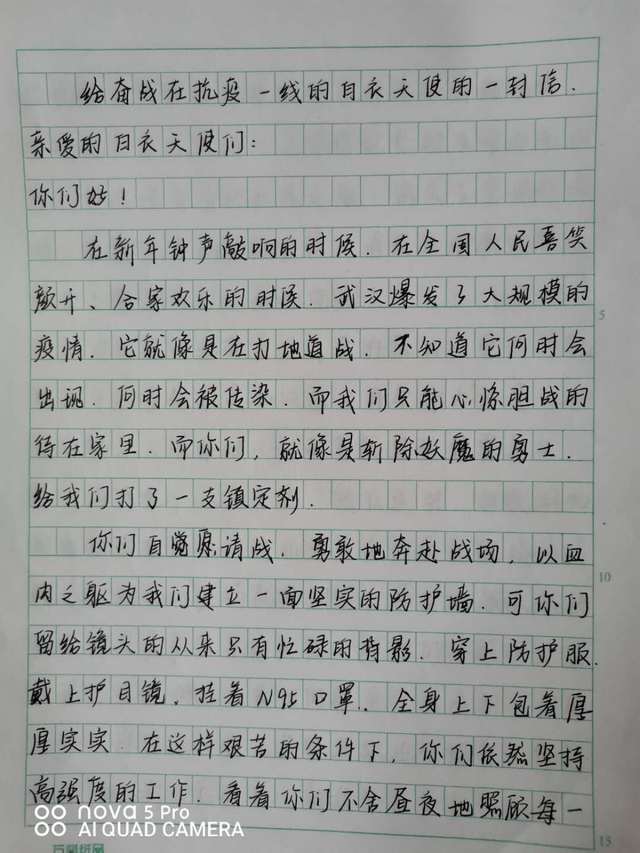 给奋战在抗疫一线的白衣天使的一封信.
亲爱的白衣天使们:
你们好!
在新年钟声敲响的时候.在全国人民喜笑
颜开、合家欢乐的时候.武汉爆发了大规模的
疫情.它就像是在打地道战.不知道它何时会
出现.何时会被传染.而我们只能心惊胆战的
待在家里.而你们,就像是斩除妖魔的勇士.
给我们打了一支镇定剂.
你们自觉愿请战.勇敢地奔赴战场,以血
肉之躯为我们建立一面坚实的防护墙.可你们
留给镜头的从来只有忙碌的背影.穿上防护服.
戴上护目镜,挂着N95口罩.全身上下包着厚
厚实实.在这样艰苦的条件下,你们依然坚持
高强度的工作.看着你们不舍昼夜地照顾每一
5
10
15
nova 5 Pro
AI QUAD CAMERA